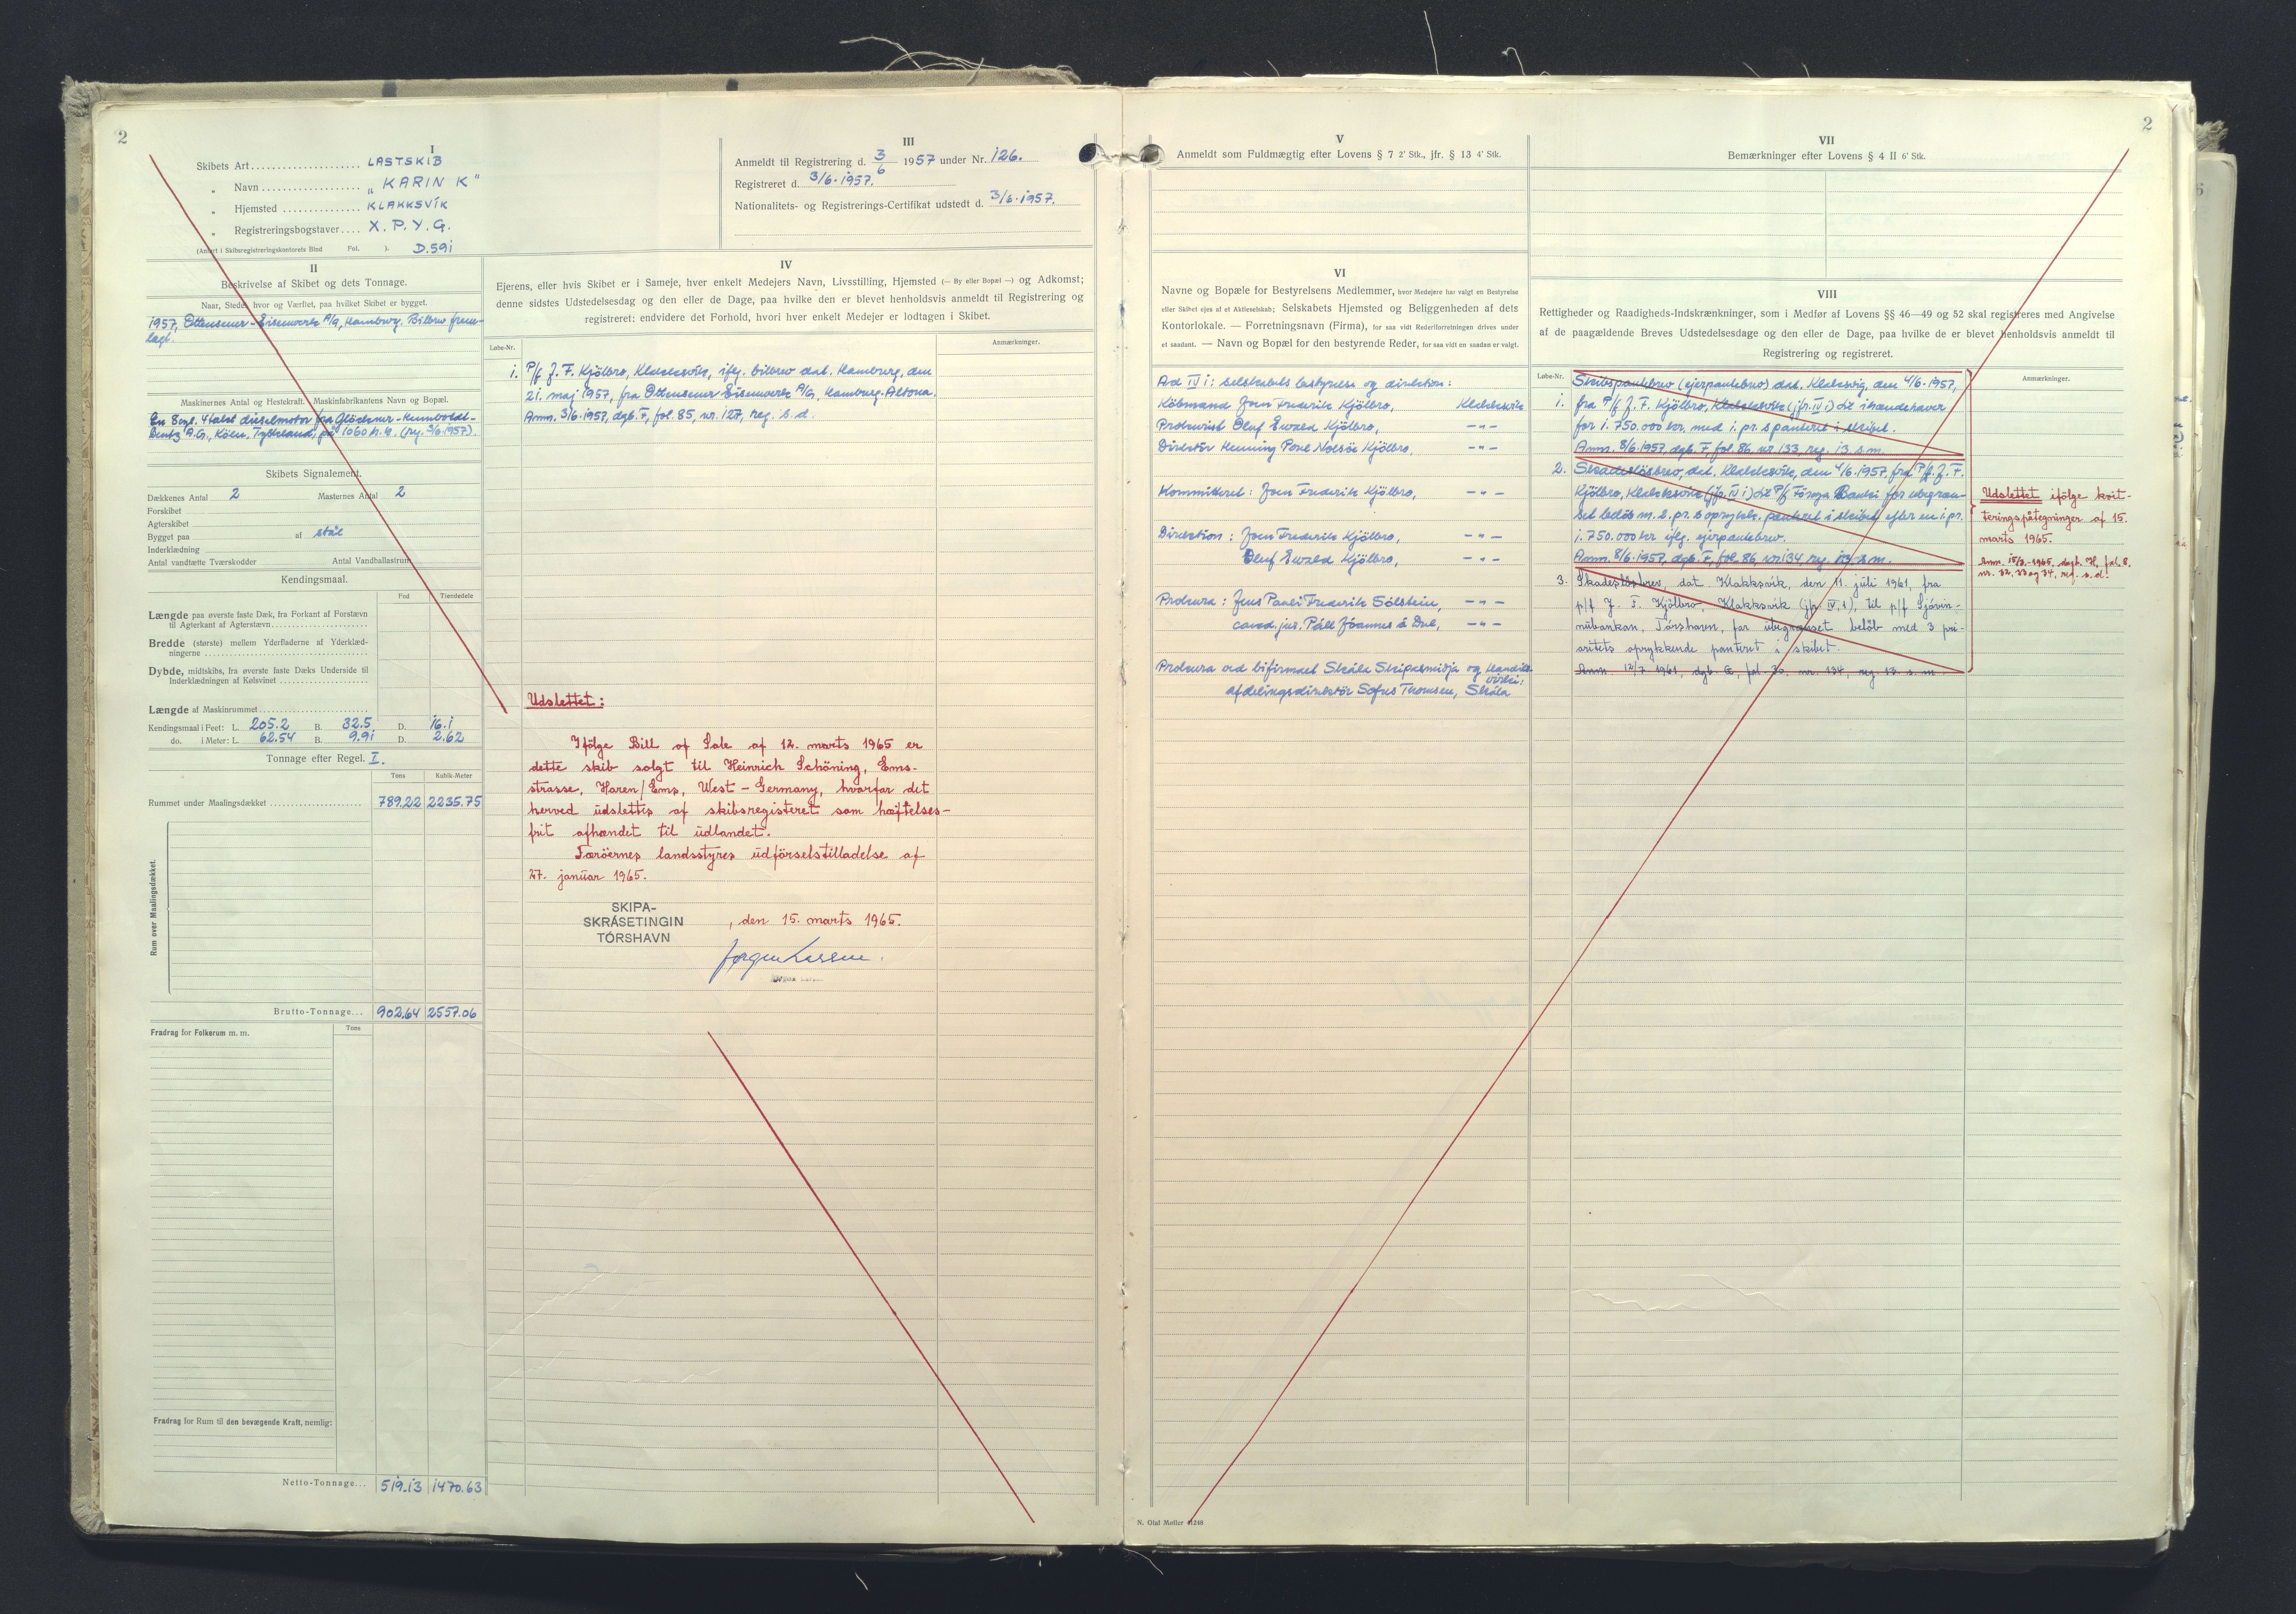 2
I
Skibets Art .................... LASTSKIB
„ Navn .................. „KARIN K"
„ Hjemsted .............. KLAKKSVÍK
„ Registreringsbogstaver .... X. P. Y. G.
(Anført i Skibsregistreringskontorets Bind Fol. ). D.591
II
Beskrivelse af Skibet og dets Tonnage.
Naar, Stedet hvor og Værftet, paa hvilket Skibet er bygget.
1957, Ottensener-Eisenwerk A/G, Hamburg. Bilbrev frem-
lagt.
Maskinernes Antal og Hestekraft. Maskinfabrikantens Navn og Bopæl.
En 8 cyl. 4 takt dieselmotor fra Glöckner-Humboldt-
Deutz A.G., Köln, Tyskland, på 1060 h.k. (reg. 3/6.1957).
Skibets Signalement.
Dækkenes Antal 2 Masternes Antal 2
Forskibet
Agterskibet
Bygget paa af stål
Inderklædning
Antal vandtætte Tværskodder Antal Vandballastrum
Kendingsmaal.
Fod Tiendedele
Længde paa øverste faste Dæk, fra Forkant af Forstævn
til Agterkant af Agterstævn
Bredde (største) mellem Yderfladerne af Yderklæd-
ningerne
Dybde, midtskibs, fra øverste faste Dæks Underside til
Inderklædningen af Kølsvinet
Længde af Maskinrummet
Kendingsmaal i Feet: L. 205.2 B. 32.5 D. 16.1
do. i Meter: L. 62.54 B. 9.91 D. 2.62
Tonnage efter Regel. I.
Tons Kubik-Meter
Rummet under Maalingsdækket 789.22 2235.75
Rum over Maalingsdækket.
Brutto-Tonnage... 902.64 2557.06
Fradrag for Folkerum m. m. Tons
Fradrag for Rum til den bevægende Kraft, nemlig:
Netto-Tonnage... 519.13 1470.63
III
Anmeldt til Registrering d. 3/6 1957 under Nr. 126.
Registreret d. 3/6.1957.
Nationalitets- og Registrerings-Certifikat udstedt d. 3/6.1957.
IV
Ejerens, eller hvis Skibet er i Sameje, hver enkelt Medejers Navn, Livsstilling, Hjemsted (— By eller Bopæl —) og Adkomst;
denne sidstes Udstedelsesdag og den eller de Dage, paa hvilke den er blevet henholdsvis anmeldt til Registrering og
registreret: endvidere det Forhold, hvori hver enkelt Medejer er lodtagen i Skibet.
Løbe-Nr. Anmærkninger.
1. P/f J. F. Kjölbro, Klakksvík, iflg. bilbrev dat. Hamburg, den
21. maj 1957, fra Ottensener Eisenwerk A/G, Hamburg-Altona.
Anm. 3/6.1957, dgb. F, fol. 85, nr. 127, reg. s. d.
Udslettet:
Ifölge Bill of Sale af 12. marts 1965 er
dette skib solgt til Heinrich Schöning, Ems-
strasse, Haren/Ems, West-Germany, hvorfor det
herved udslettes af skibsregisteret som hæftelses-
frit afhændet til udlandet.
Færöernes landsstyres udförselstilladelse af
27. januar 1965.
SKIPA-
SKRÁSETINGIN
TÓRSHAVN
, den 15. marts 1965.
Jørgen Larsen.
V
Anmeldt som Fuldmægtig efter Lovens § 7 2' Stk., jfr. § 13 4' Stk.
VI
Navne og Bopæle for Bestyrelsens Medlemmer, hvor Medejere har valgt en Bestyrelse
eller Skibet ejes af et Aktieselskab; Selskabets Hjemsted og Beliggenheden af dets
Kontorlokale. — Forretningsnavn (Firma), for saa vidt Rederiforretningen drives under
et saadant. — Navn og Bopæl for den bestyrende Reder, for saa vidt en saadan er valgt.
Ad IV 1: Selskabets bestyrelse og direktion:
Köbmand Joen Frederik Kjölbro, Klakksvík
Prokurist Oluf Ewald Kjölbro, -"-
Direktör Henning Poul Nolsöe Kjölbro, -"-
Kommitteret: Joen Frederik Kjölbro, -"-
Direktion: Joen Frederik Kjölbro, -"-
Oluf Ewald Kjölbro, -"-
Prokura: Jens Pauli Frederik Sólstein, -"-
cand. jur. Páll Jóannes á Dul, -"-
Prokura vid bifirmaet Skála Skipasmidja og Handils-
virki:
afdelingsdirektör Sofus Thomsen, Skála
VII
2
Bemærkninger efter Lovens § 4 II 6' Stk.
VIII
Rettigheder og Raadigheds-Indskrænkninger, som i Medfør af Lovens §§ 46—49 og 52 skal registreres med Angivelse
af de paagældende Breves Udstedelsesdag og den eller de Dage, paa hvilke de er blevet henholdsvis anmeldt til
Registrering og registreret.
Løbe-Nr. Anmærkninger.
1. Skibspantebrev (ejerpantebrev) dat. Klaksvig, den 4/6.1957,
fra P/f J. F. Kjölbro, Klakksvík (jfr. IV 1) til ihændehaver
for 1.750.000 kr. med 1. pr. s panteret i skibet.
Anm. 8/6.1957, dgb. F, fol. 86, nr. 133, reg. 13. s.m.
2. Skadeslösbrev, dat. Klakksvík, den 4/6.1957, fra P/f. J. F.
Kjölbro, Klakksvík (jfr. IV 1) til P/f Föroya Banki for ubegræn-
set belöb m. 2. pr. s oprykk. panteret i skibet, efter en 1. pr.
1.750.000 kr iflg. ejerpantebrev.
Anm. 8/6.1957, dgb. F, fol. 86, nr 134, reg. 13. s.m.
3. Skadeslösbrev, dat. Klakksvík, den 11. júli 1961, fra
p/f J. F. Kjölbro, Klakksvík (jfr. IV,1), til p/f Sjóvin-
nubankan, Tórshavn, for ubegrænset belöb med 3 pri-
oritets oprykkende panteret i skibet.
Anm. 12/7 1961, dgb. G, fol. 30, nr. 134, reg. 13. s. m.
Udslettet ifölge kvit-
teringspåtegninger af 15.
marts 1965.
Anm. 15/3-1965, dagb. H, fol. 8.
nr. 32, 33 og 34, reg. s. d.
N. Olaf Møller 41248